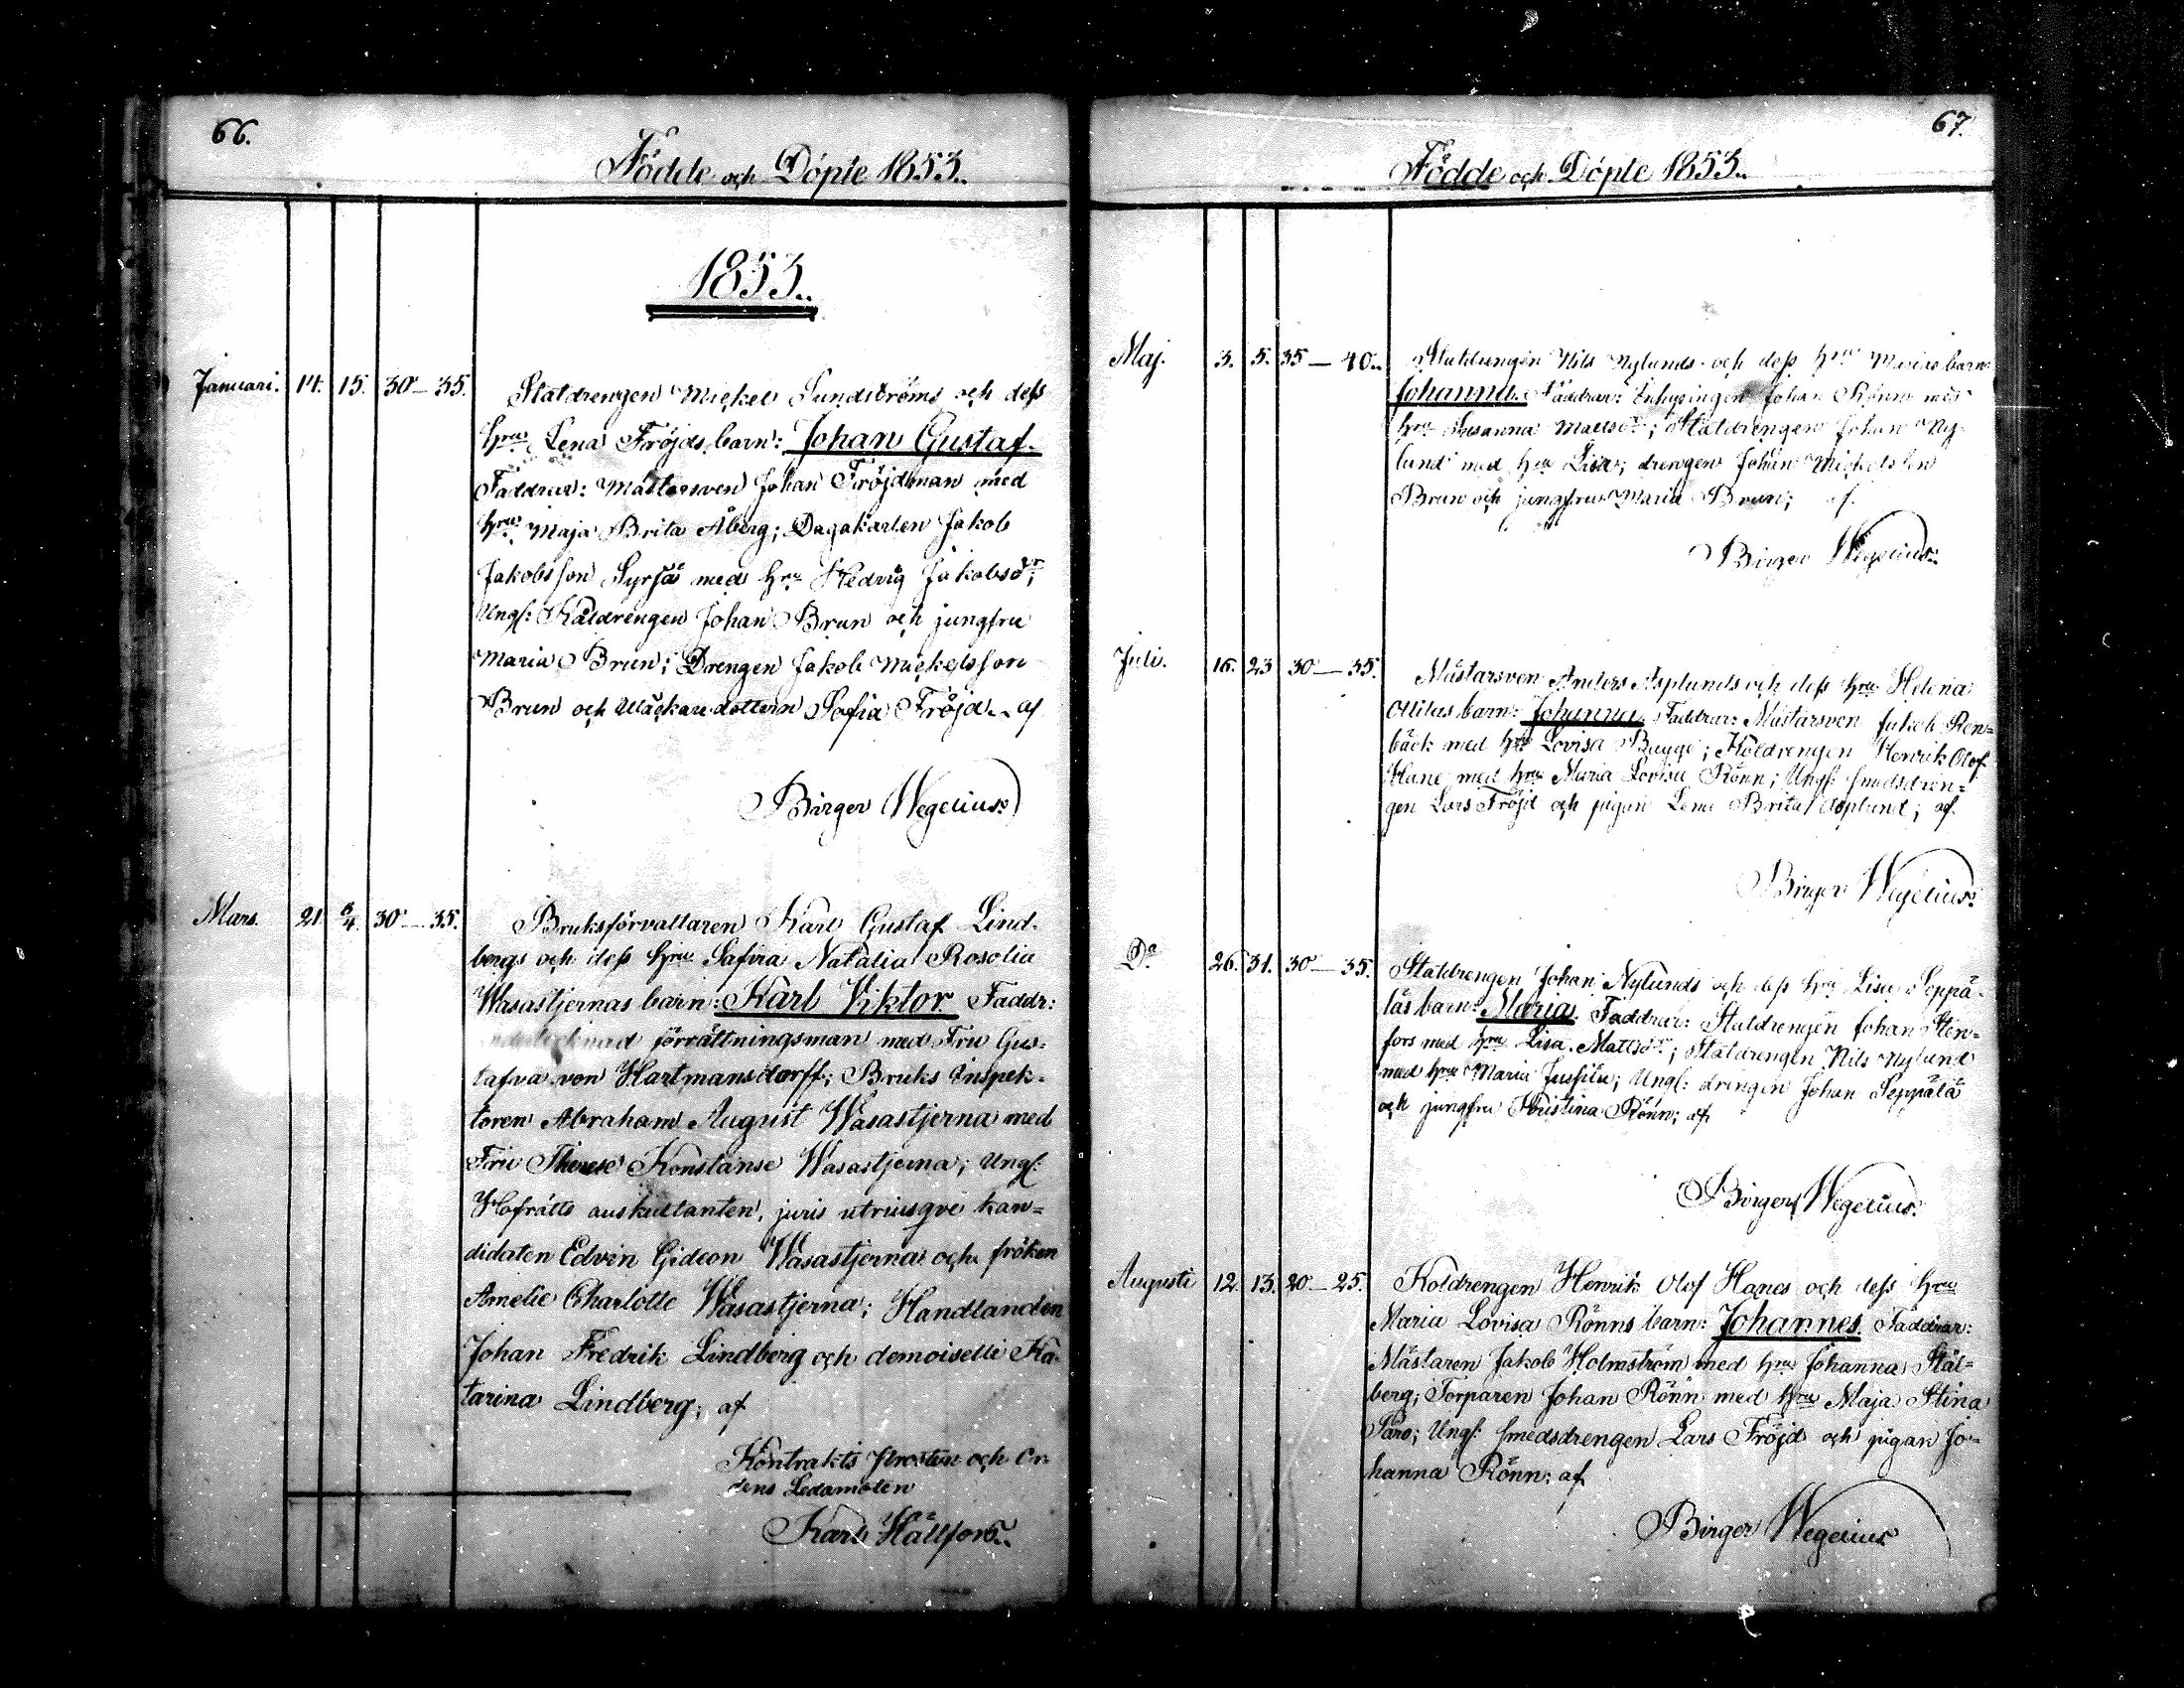 66.
Födde och Döpte 1853.
1853.
Januari. 14. 15. 30 — 35. Staldrengen Mickel Sundströms och dess
hru Lena Fröjds barn: Johan Gustaf.
Faddrar: Mästarsven Johan Fröjdman med
hru Maja Brita Åberg; Dagakarlen Jakob
Jakobsson Syrjä med hru Hedvig Jakobsdr;
Ungf: Koldrengen Johan Brun och jungfru
Maria Brun; Drengen Jakob Mickelsson
Brun och dottern Sofia Fröjd. af
Birger Wegelius.
Mars. 21. 3/4. 30 — 35. Bruksförvaltaren Karl Gustaf Lind-
bergs och dess hru Safira Natalia Rosolia
Wasastjernas barn: Karl Viktor. Faddr:
förrättningsman med Fru Gus-
tafva von Hartmansdorff; Bruks Inspek-
toren Abraham August Wasastjerna med
Fru Therese Konstanse Wasastjerna; Ungf:
Hofrätts auskultanten, juris utriusqve kan=
didaten Edvin Gideon Wasastjerna och fröken
Amelie Charlotte Wasastjerna; Handlanden
Johan Fredrik Lindberg och demoiselle Ka-
tarina Lindberg; af
Kontrakts Prosten och Or-
dens Ledamoten
Karl Hällfors.
67.
Födde och Döpte 1853.
Maj. 3. 5. 35 — 40. Staldrengen Nils Nylunds och dess hru Marias barn:
Johannes. Faddrar: Inhysingen Johan Rönn med
hru Susanna Mattsdr; Staldrengen Johan Ny-
lund med hru Lisa; drengen Johan Mickelsson
Brun och jungfru Maria Brun; af.
Birger Wegelius.
Juli. 16. 23. 30 — 35. Mästarsven Anders Asplunds och dess hru Helena
Ottilias barn: Johanna. Faddrar: Mästarsven Jakob Ren=
bäck med hru Lovisa Bugge; Koldrengen Henrik Olof
Hane med hru Maria Lovisa Rönn; Ungf: smedsdren=
gen Lars Fröjd och pigan Lena Brita Asplund; af
Birger Wegelius.
Do 26. 31. 30 — 35. Staldrengen Johan Nylunds och dess hru Lisa Seppä-
läs barn: Maria. Faddrar: Staldrengen Johan Sten-
fors med hru Lisa Mattsdr; Staldrengen Nils Nylund
med hru Maria Jussila; Ungf: drengen Johan Seppälä
och jungfru Kristina Rönn; af
Birger Wegelius.
Augusti 12. 13. 20 — 25. Koldrengen Henrik Olof Hanes och dess hru
Maria Lovisa Rönns barn: Johannes. Faddrar:
Mästaren Jakob Holmström med hru Johanna Stål=
berg; Torparen Johan Rönn med hru Maja Stina
Ungf: smedsdrengen Lars Fröjd och pigan Jo-
hanna Rönn: af
Birger Wegelius